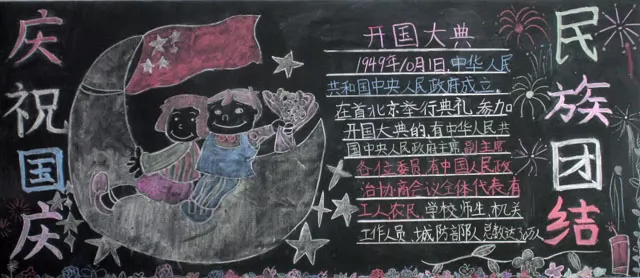 庆祝国庆
开国大典
1949年10月1日中华人民
共和国中央人民政府成立。
在首北京举行典礼,参加
开国大典的,有中华人民共
国中央人民政府主席副主席
各位委员,有中国人民政
治协商会议全体代表,有
工人农民,学校师生,机关
工作人员,城防部队,总数达30万人
民族团结